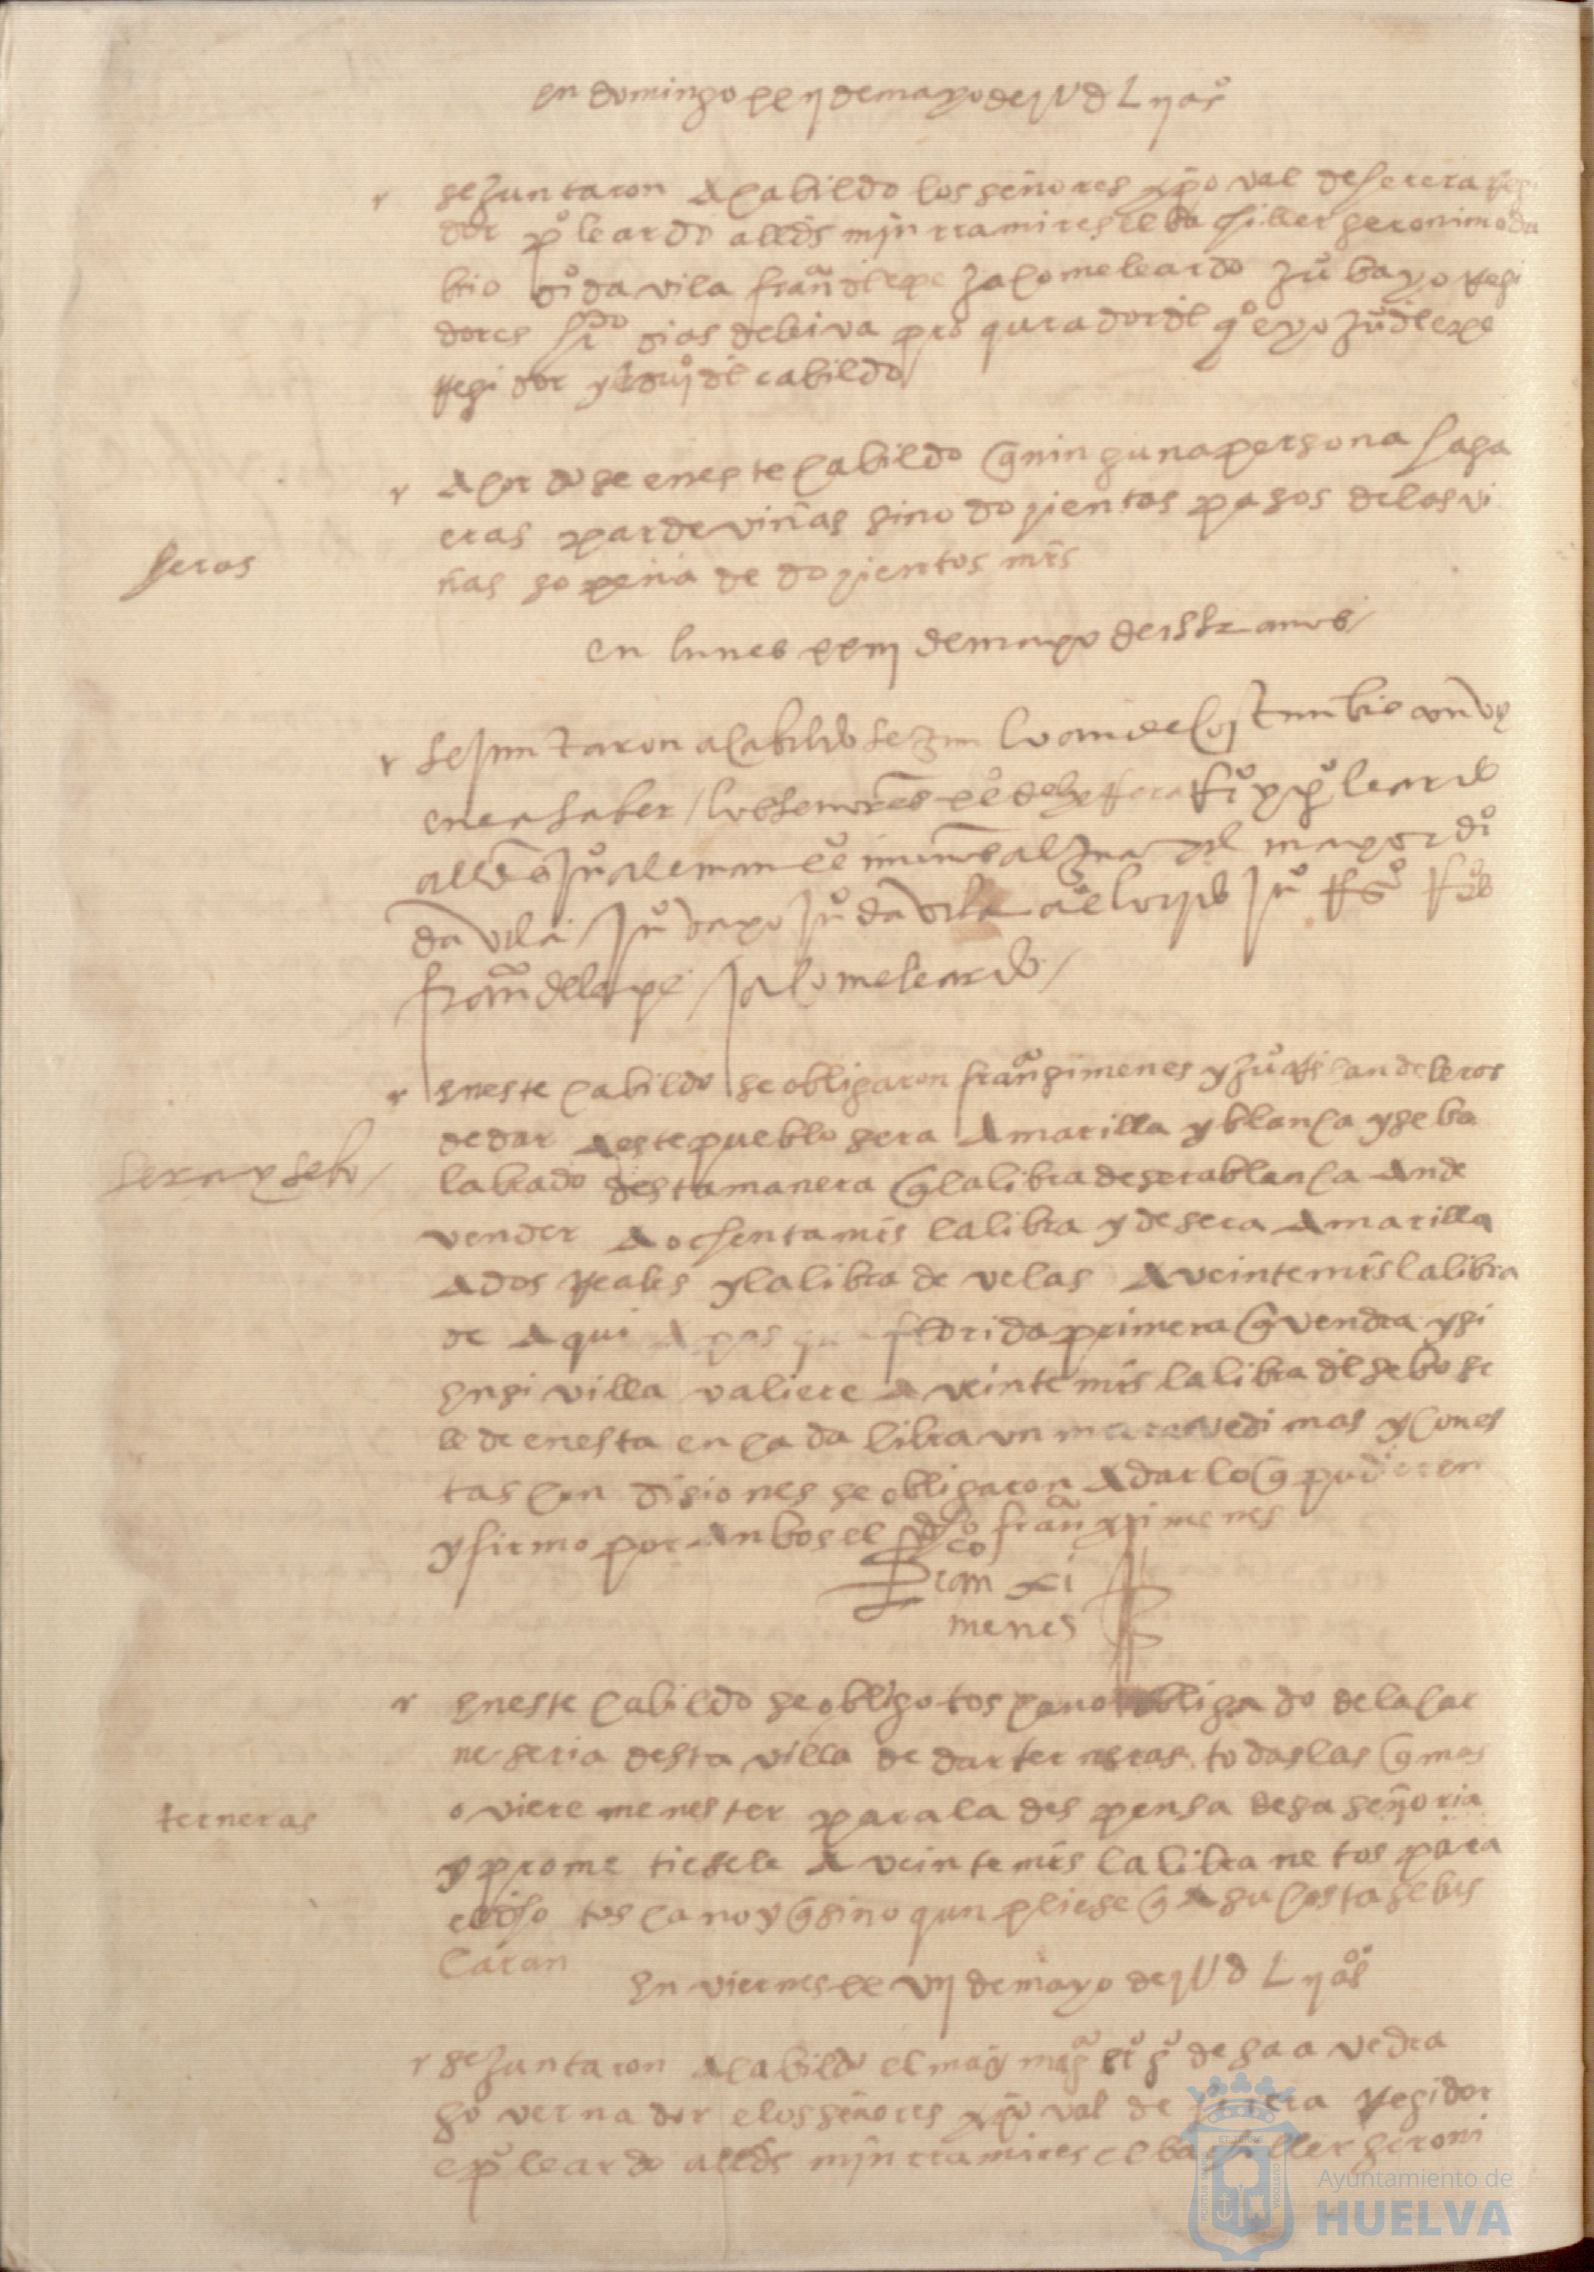 en domingo xx ij de mayo de jVd L ij aºs
se juntaron a cabildo los señores xpoval de herera Regi
dor pº leardo alldes min rramires el bachiller geronimo de ru
bio diº davila franco d lepe jacome leardo juº bayo Regi
dores hrdo dias de leiva procurador dl qº e yo juº d lepe
Regidor y del cabildo
acordose en este cabildo q ninguna persona haga
eras par de viñas sino dozientos pasos de las vi
ñas so pena de dozientos mrs
heras
en lunes xxiij de mayo de 1552 anos /
se juntaron a cabildo segun lo an de costunbre conv
ene a saber / los senores de herrera y pº leardo
alldes juº aleman alguazil mayor diº
davila / juº vayo juº davila juº
franco de lepe / jacome leardo /
en este cabildo se obligaron franco gimenes y juº candeleros
de dar a este pueblo sera amarilla y blanca y sebo
labrado desta manera q la libra de sera blanca an de
vender a ochenta mrs la libra y de sera amarilla
a dos Reales y la libra de velas a veinte mrs la libra
de aqui a pasqua florida primera q vendra y si
en sivilla valiere a veinte mrs la libra del sebo se
le de en esta en cada libra un maravedi mas y con es
tas condisiones se obligaron a dar lo q pudieren
y firmo por anbos el dho franco ximenes
sera y sebo /
Franco xi
menes
en este cabildo se obligo toscano obligado de la car
neseria desta villa de dar terneras todas las q mas
oviere menester para la despensa de sa señoria
y prometiesele a veinte mrs la libra netos para
el dho toscano y q si no qunpliese q a su costa se bus
caran
terneras
en viernes xx vij de mayo de jVd L ij aºs
se juntaron a cabildo el mag de saavedra
governador e los señores xpoval de herera Regidor
e pº leardo alldes min rramires el bachiller geroni
Ayuntamiento de
HUELVA